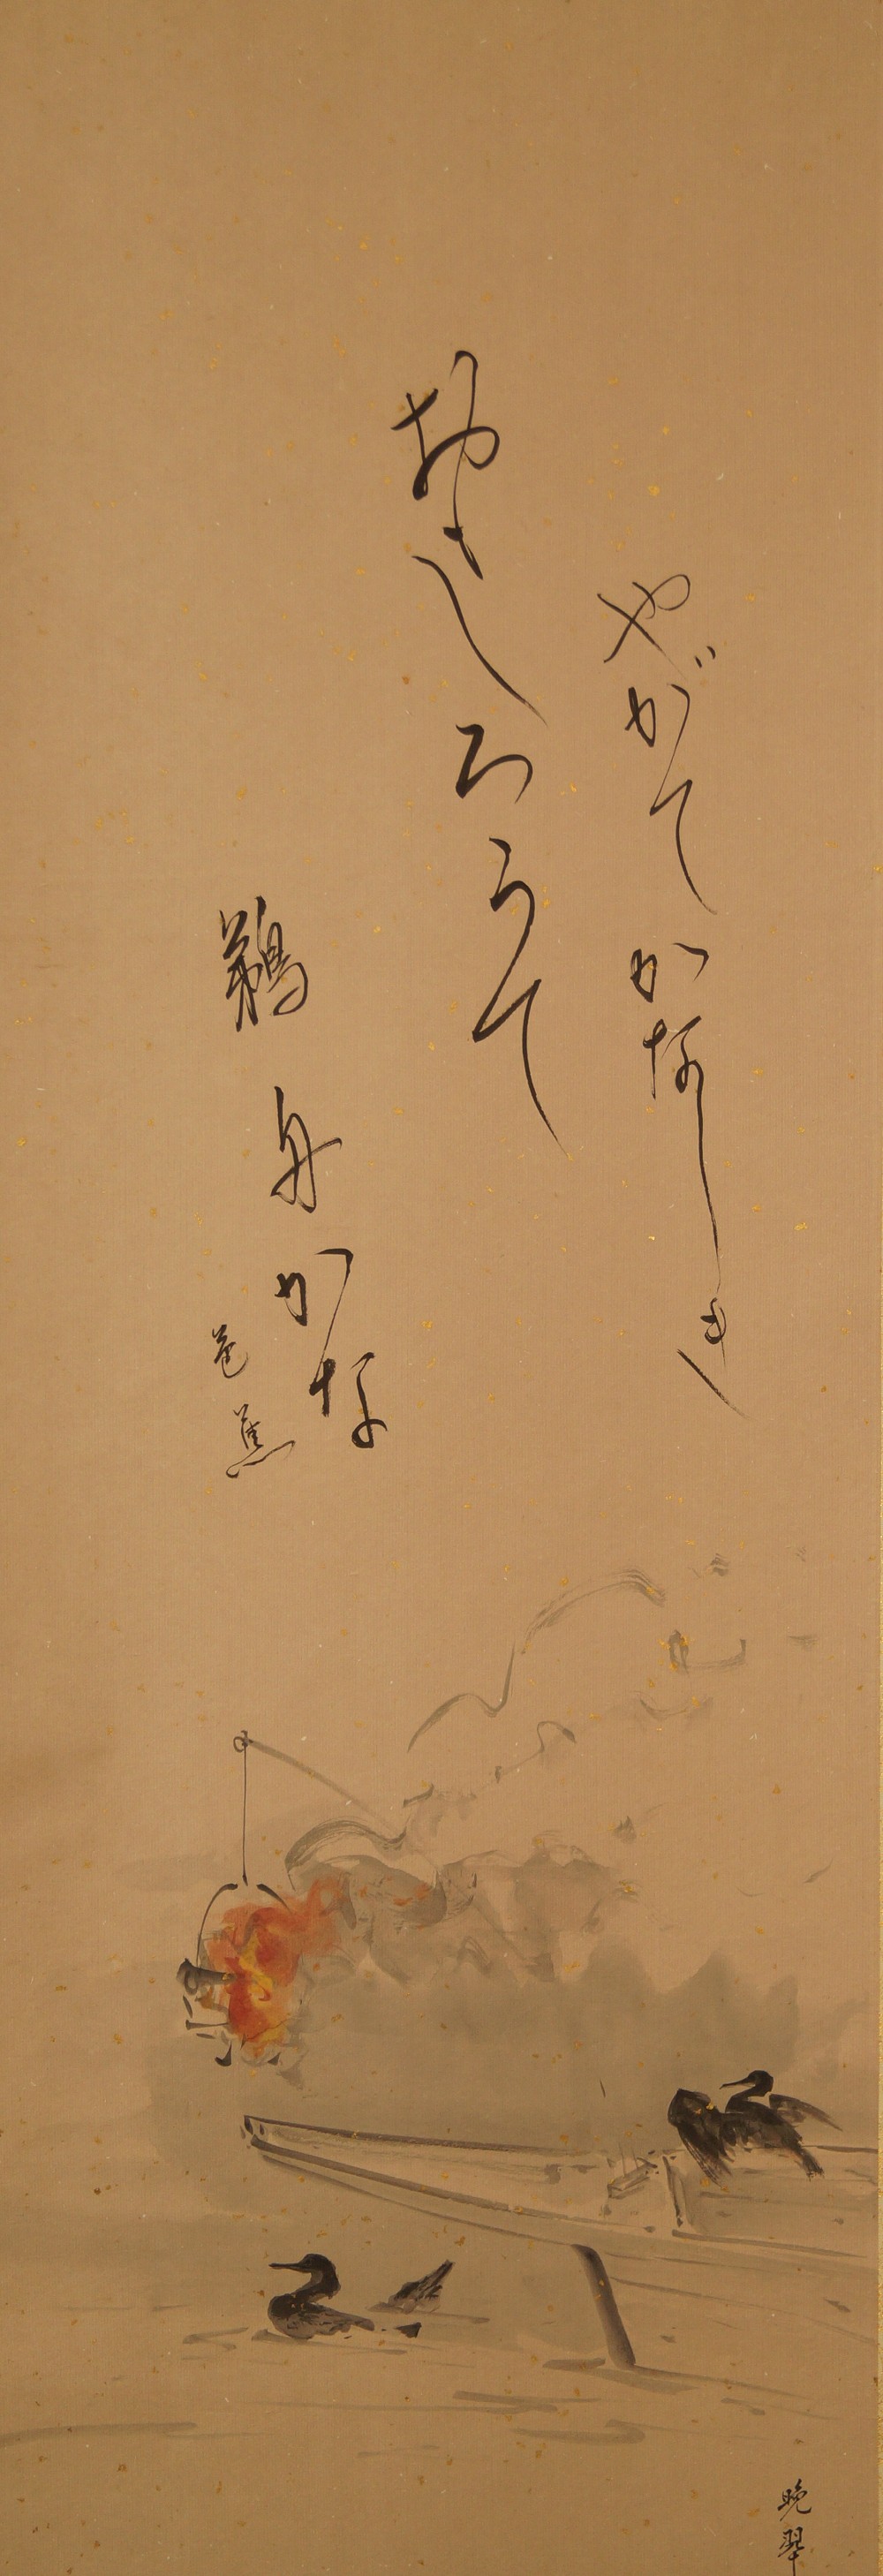 おもしろうて
やがてかなしき
鵜舟かな
芭蕉
晩翠